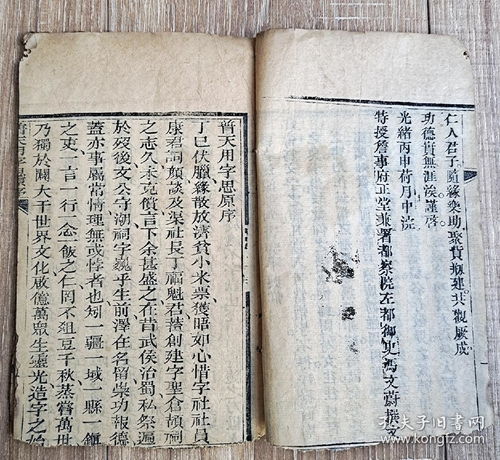 仁人君子隨緣樂助聚貨祠建共觀厥成
功德實無涯涘謹啓
光緒丙申荷月中浣
特授詹事府正堂兼署都察院左都御史馮文蔚撰文
普天用字思原序
丁巳伏臘緣散放濟貧小米票獲晤如心惜字社社員
康君詞頗談及渠社長丁蕭魁君蓄創建字聖倉頡祠
之志久未克償言下余甚盛之在昔武侯治蜀私祭遍
於歿後文公守潮祠宇巍乎生前澤在名留崇功報德
蓋亦事屬當情理無或悖者也矧一疆一域一縣一鎮
之吏一言一行一念一飯之仁罔不俎豆千秋蒸嘗萬世
乃獨於闢大千世界文化啟億萬眾生靈光造字之始
孔夫子旧书网